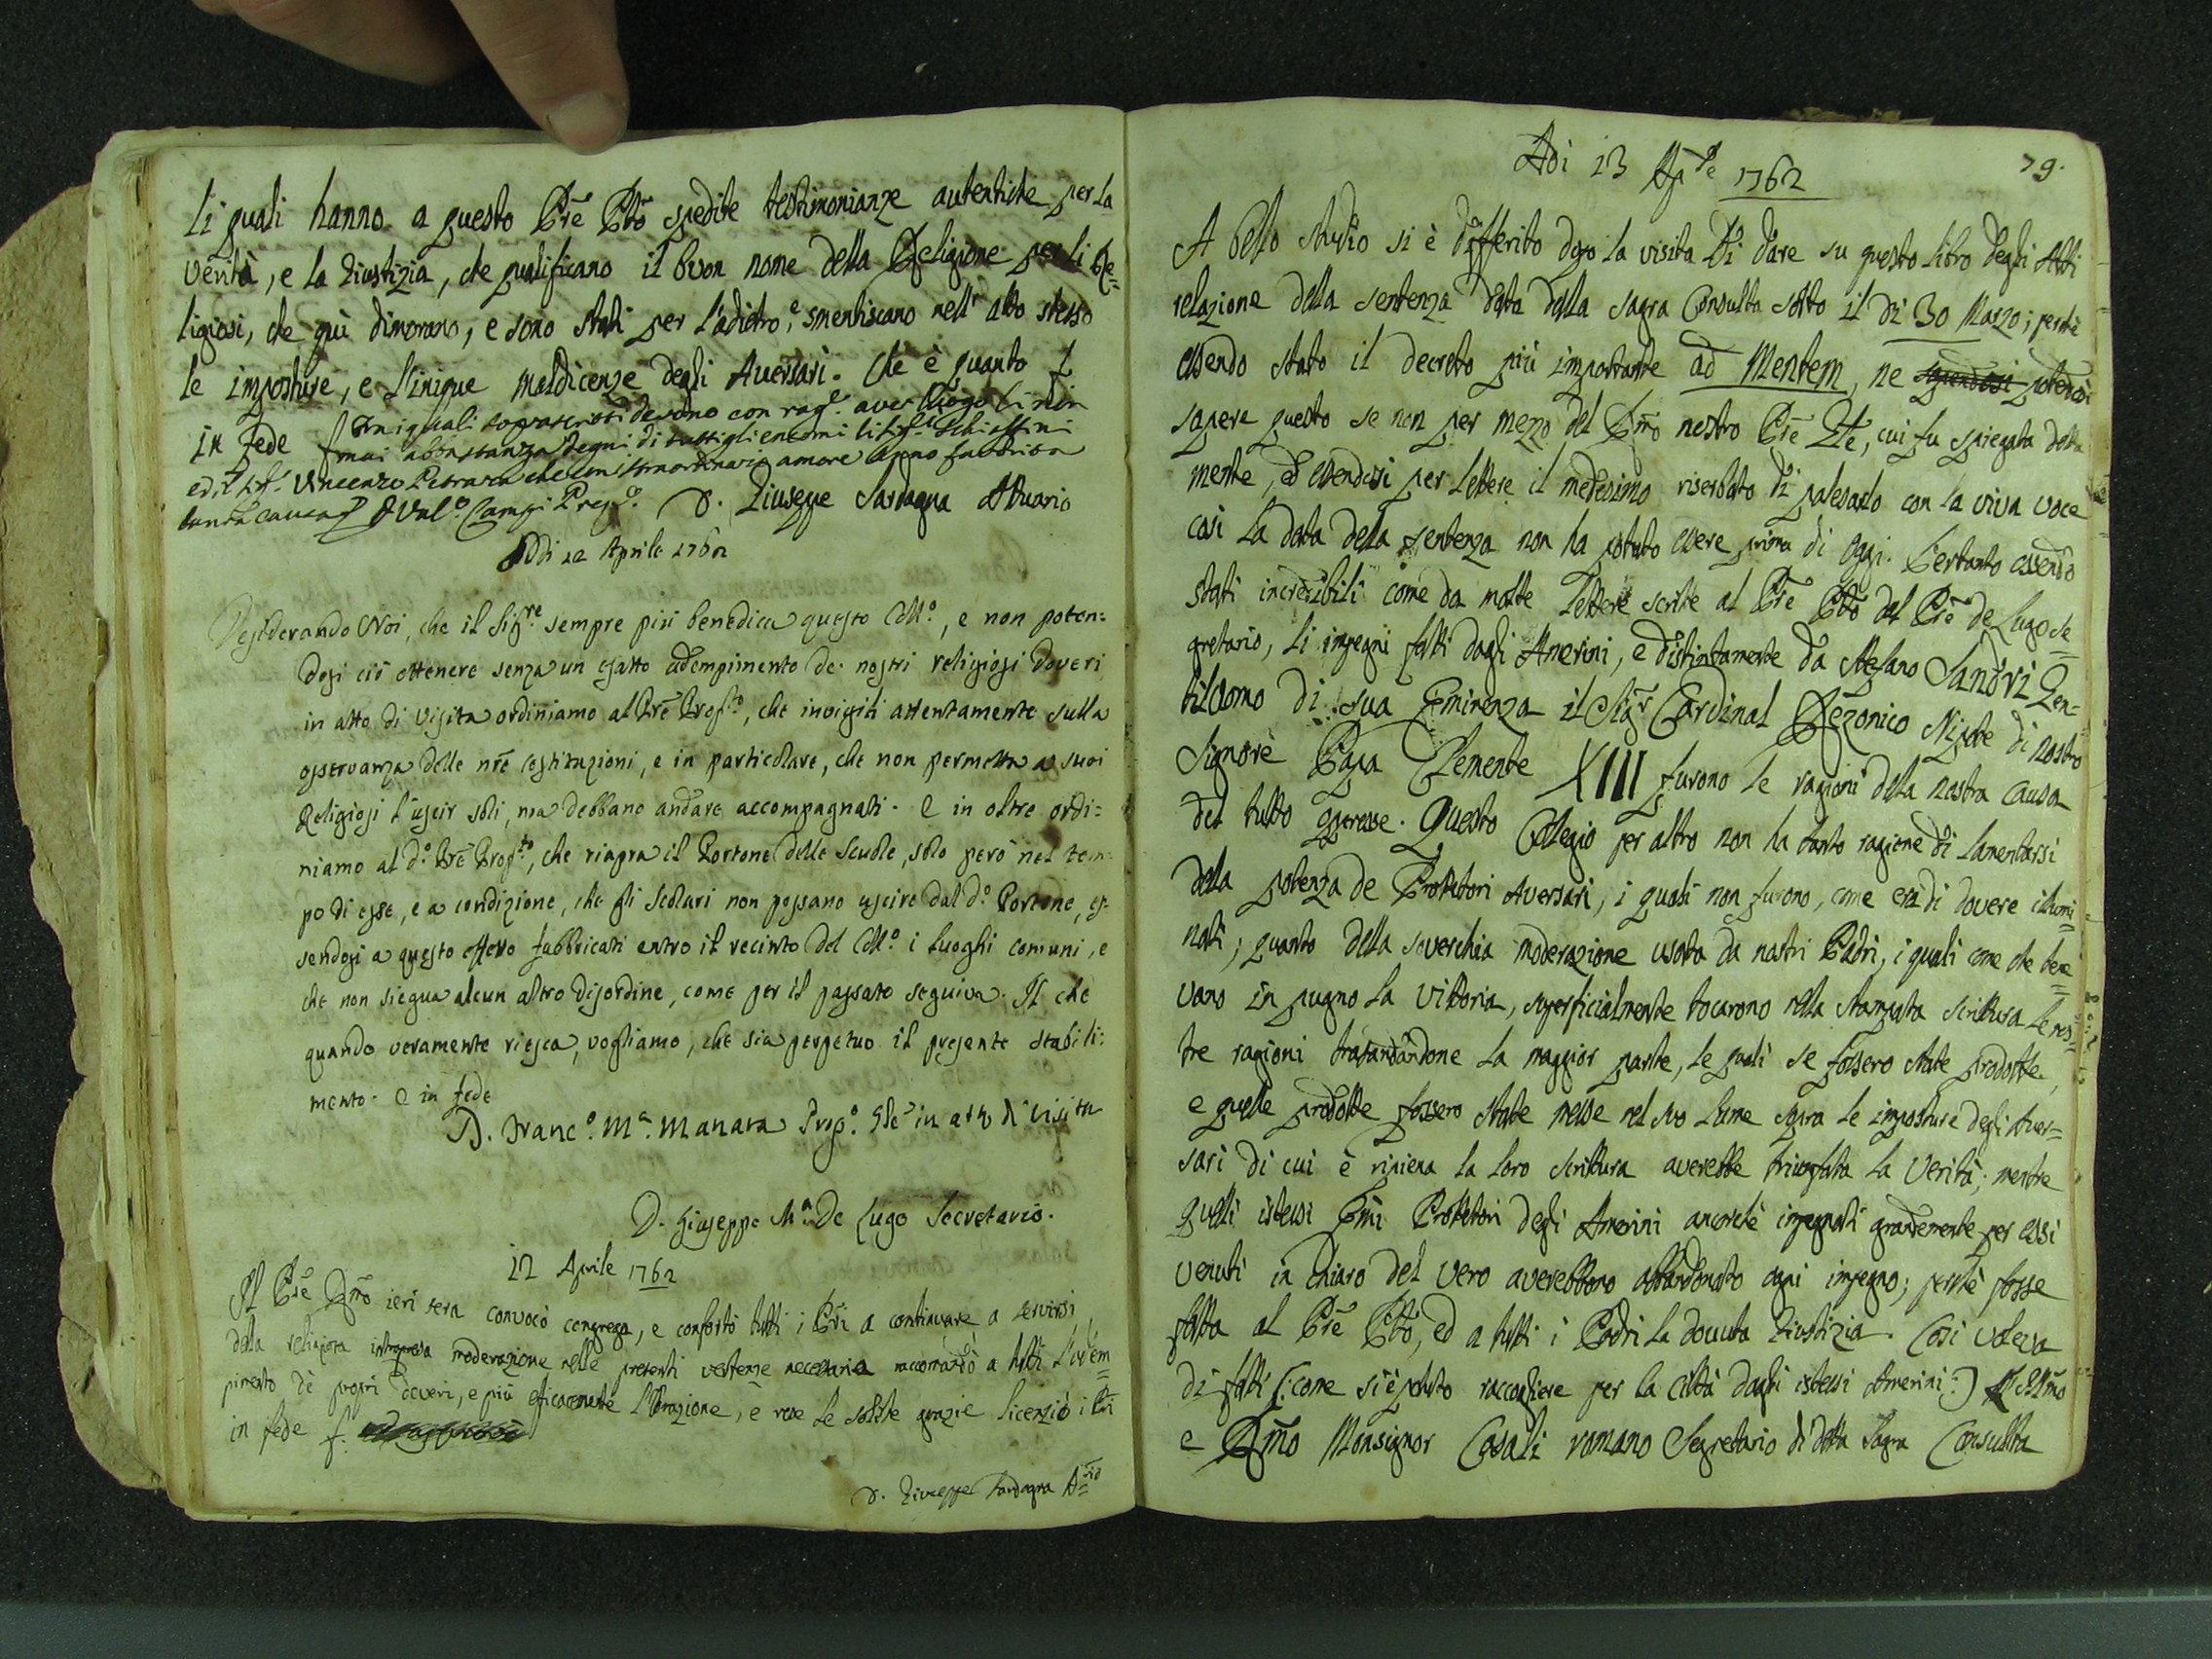 li quali hanno a questo Pre Ptto spedite testimonianze autentiche per la
verità, e la Giustizia, che qualificano il buon nome della Religione per li Re=
ligiosi, che quì dimorano, e sono stati per l'adietro, e smentiscano nell' atto stesso
le imposture, e l'inique maldicenze degli Aversarj. Che è quanto
in fede fra i quali soprascritti devono con rag.e aver luogo li non
mai abbastanza degni di tutti gli encomi li Schiaffini
ed il Vincenzo Petrara che con straordinario amore anno favorita
tanta causa D Val.o Campi Prep.o D. Giuseppe Sardagna Attuario
Adi 12 Aprile 1762
Desiderando Noi, che il Sig.re sempre più benedica questo Coll.o, e non poten=
dosi ciò ottenere senza un esatto adempimento de nostri religiosi doveri
in atto di visita ordiniamo al Pre Prep.to, che invigili attentamente sulla
osservanza delle nre costituzioni, e in particolare, che non permetta a suoi
Religiosi l'uscir soli, ma debbano andare accompagnati. E in oltre ordi=
niamo al d.o Pre Prep.to, che riapra il Portone delle Scuole, solo però nel tem=
po di esse, e a condizione, che gli Scolari non possano uscire dal d.o Portone, es=
sendosi a questo effetto fabbricati entro il recinto del Coll.o i luoghi comuni, e
che non siegua alcun altro disordine, come per il passato seguiva. Il che
quando veramente riesca, vogliamo, che sia perpetuo il presente stabili=
mento. E in fede
D. Franc.o M.a Manara Prep.o Gle in atto di visita
D. Giuseppe M.a De Lugo Secretario.
12 Aprile 1762
Il Pre Rmo ieri sera convocò congrega, e confortò tutti i Pri a continuare a servirsi
della religiosa intrapresa moderazione nelle presenti vertenze necessaria raccomandò a tutti l'adem=
pimento de propri doveri, e più eficacemente l'Orazione, e rese le solite grazie licenziò i Pri
in fede f.
D. Giuseppe Sardagna A.rio
79.
Adi 13 Ap.le 1762
A bello studio si è differito dopo la visita di dare su questo libro degli Atti
relazione della sentenza data della sagra Consulta sotto il dì 30 Marzo; perchè
essendo stato il decreto più importante ad Mentem, ne sapendosi potendosi
sapere questo se non per mezzo del Rmo nostro Pre Gle, cui fu spiegata detta
mente, ed essendosi per lettere il medesimo riserbato di palesarlo con la viva voce
così la data della sentenza non ha potuto essere prima di oggi. Pertanto essendo
stati incredibili come da molte lettere scrite al Pre Ptto dal Pre de Lugo Se=
gretario, li impegni fatti dagli Amerini, e distintamente da Stefano Sandri Gen=
tiluomo di sua Eminenza il Sig.r Cardinal Rezonico Nipote di nostro
Signore Papa Clemente XIII furono le ragioni della nostra causa
del tutto oppresse. Questo Colegio per altro non ha tanto ragione di lamentarsi
della potenza de Protetori Aversari, i quali non furono, come era di dovere illumi=
nati; quanto della soverchia moderazione usata da nostri Padri, i quali come che tene=
vano in pugno la Vittoria, superficialmente tocarono nella stampata scrittura le nos=
tre ragioni trasandandone la maggior parte, le quali se fossero state prodotte,
e quelle prodotte fossero state messe nel suo lume sopra le imposture degli Aver=
sari di cui è ripiena la loro scrittura averebbe trionfata la Verità; mentre
quelli istessi Emi Protetori degli Amerini ancorchè impegnati grandemente per essi
venuti in chiaro del vero averebbono abbandonato ogni impegno; perchè fosse
fatta al Pre Ptto, ed a tutti i Padri la dovuta Giustizia. Così voleva
di fatti (:come si è potuto raccogliere per la città dagli istessi Amerini:) Il
e Rmo Monsignor Casali romano Segretario di detta Sagra Consulta